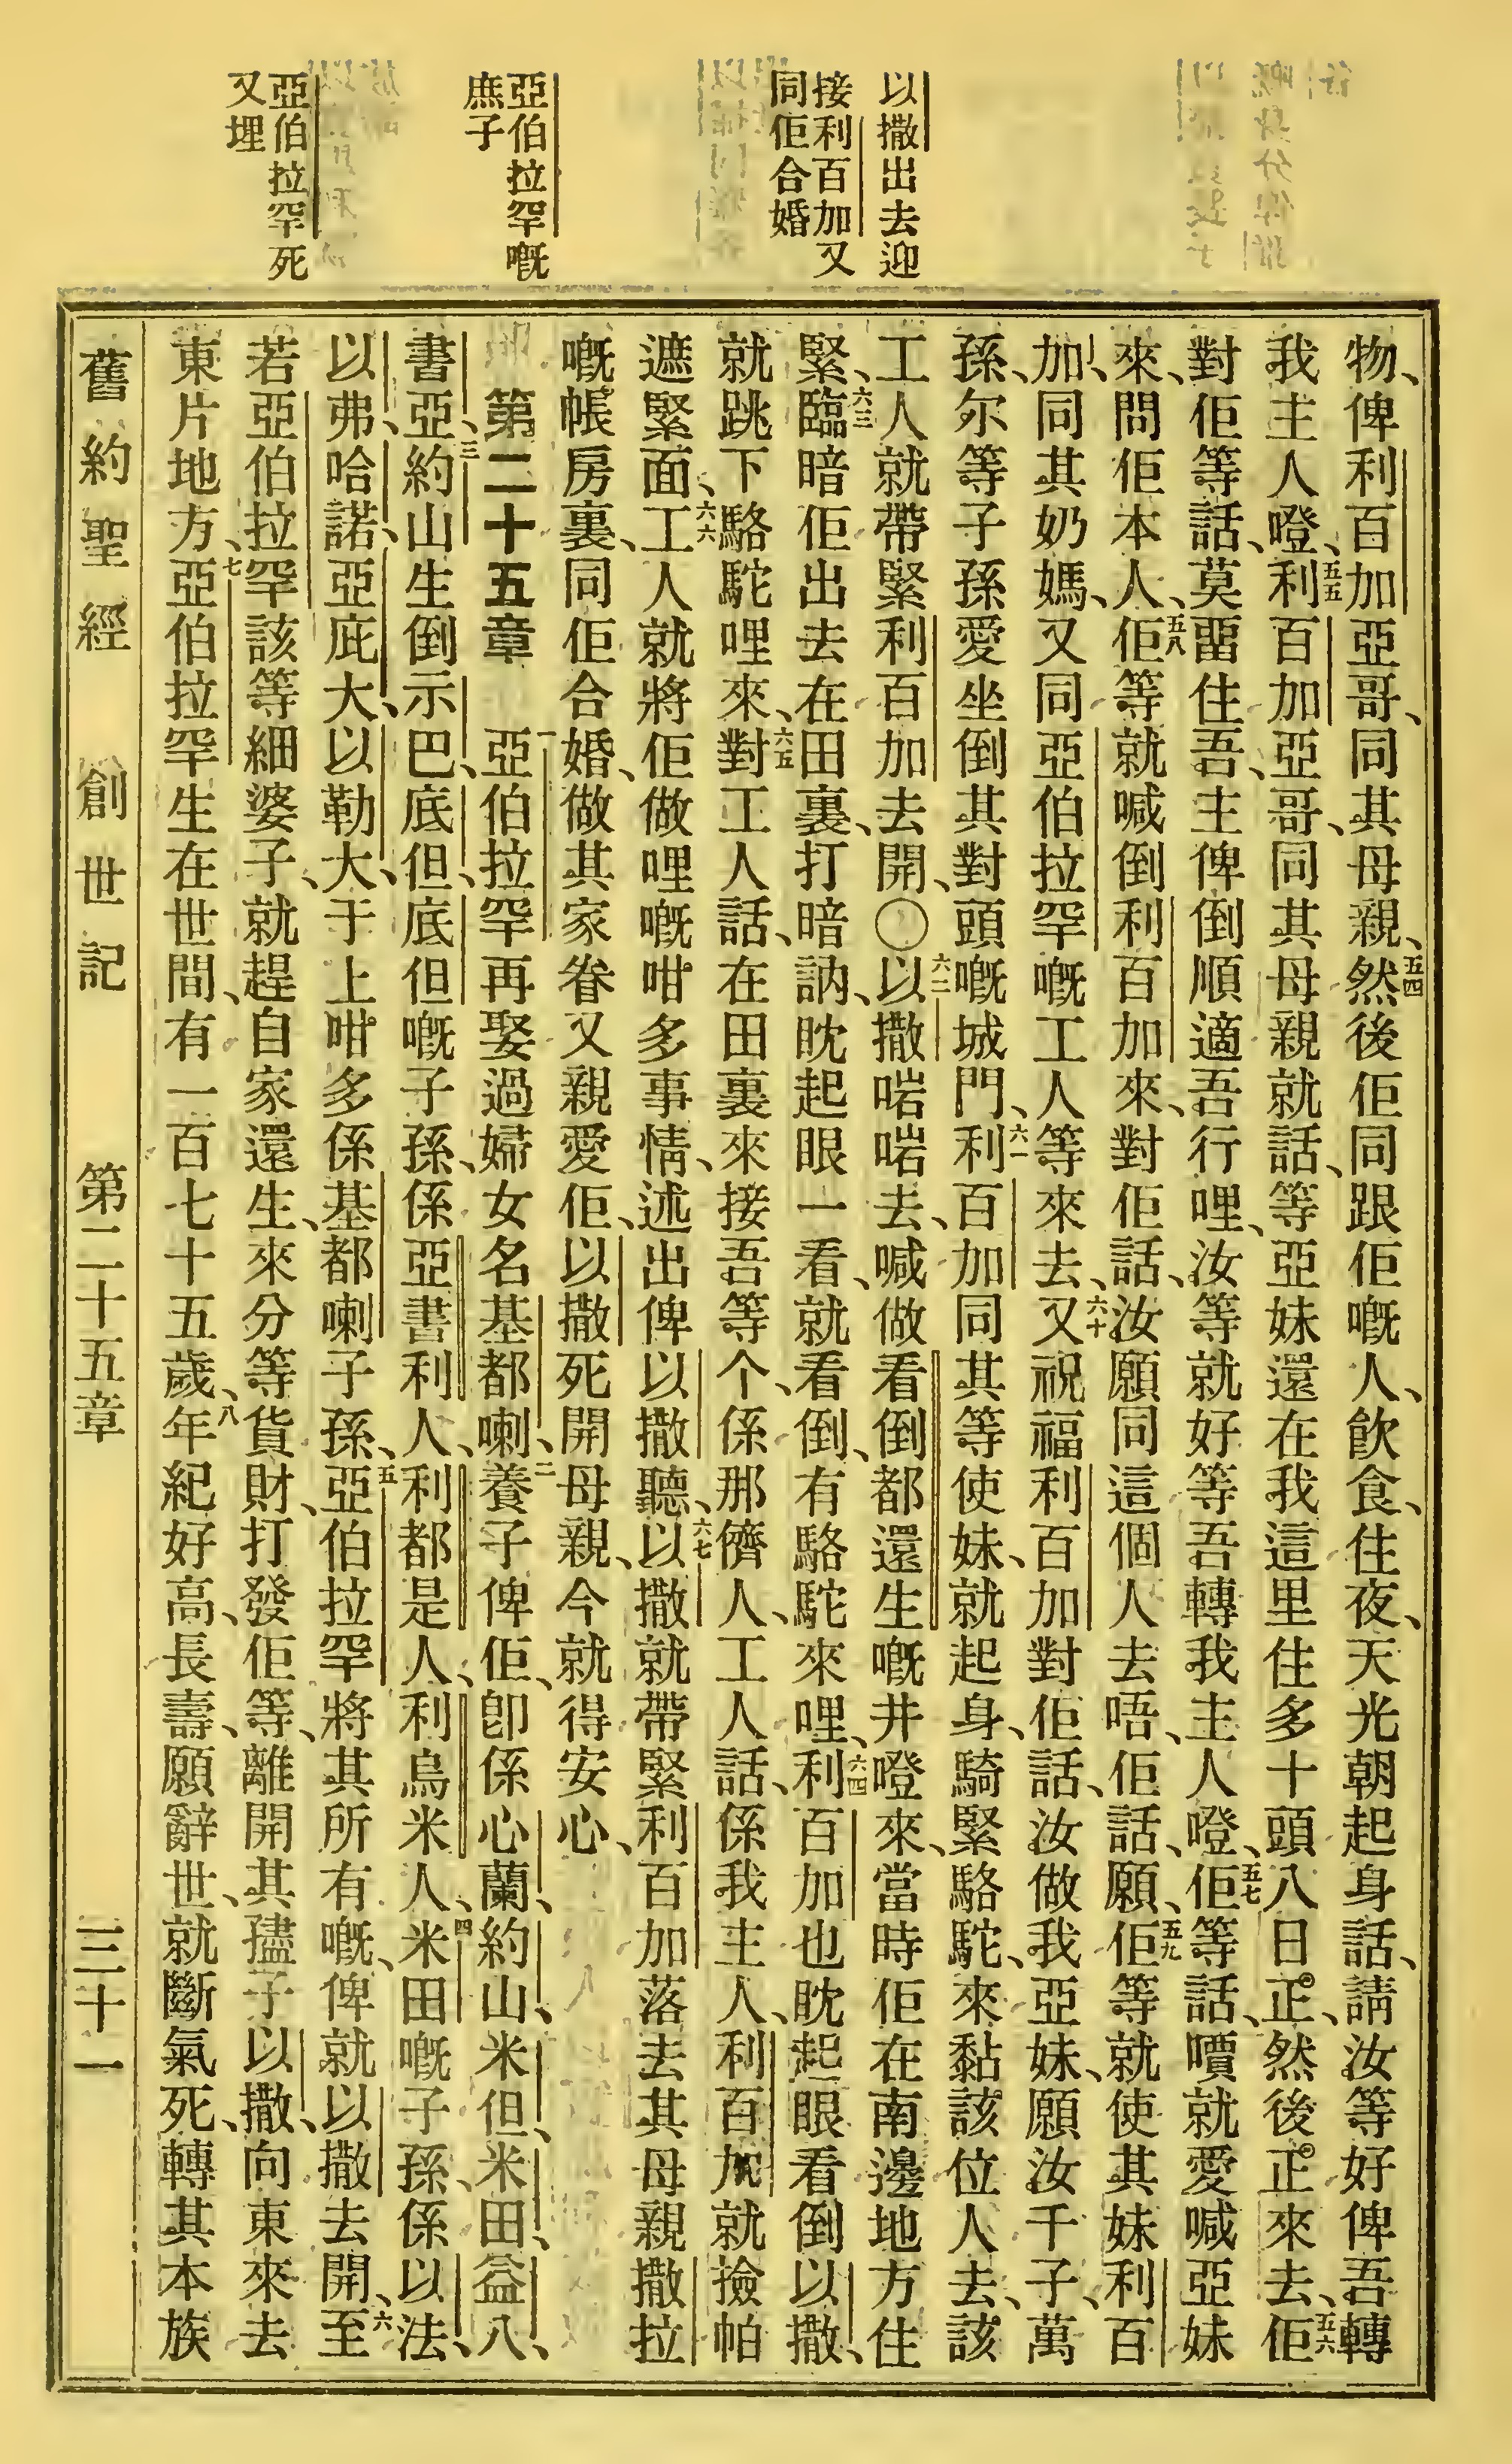 以撒出去迎
接利百加又
同佢合婚
亞伯拉罕嘅
庶子
亞伯拉罕死
又埋
物、俾利百加亞哥、同其母親、五四然後佢同跟佢嘅人、飲食、住夜、天光朝起身話、請汝等好俾吾轉
我主人噔、五五利百加亞哥、同其母親就話、等亞妹還在我這里住多十頭八日正、然後正來去、五六佢
對佢等話、莫畱住吾、主俾倒順適吾行哩、汝等就好等吾轉我主人噔、五七佢等話、嚽就愛喊亞妹
來、問佢本人、五八佢等就喊倒利百加來、對佢話、汝願同這個人去唔、佢話、願、五九佢等就使其妹利百
加、同其奶媽、又同亞伯拉罕嘅工人等來去、六十又祝福利百加對佢話、汝做我亞妹、願汝千子、萬
孫、尔等子孫愛坐倒其對頭嘅城門、六一利百加同其等使妹、就起身、騎緊駱駝、來黏該位人去、該
工人就帶緊利百加去開、〇六二以撒啱啱去、喊做看倒都還生嘅井噔來、當時佢在南邊地方住
緊、六三臨暗佢出去在田裏、打暗訥、眈起眼一看、就看倒、有駱駝來哩、六四利百加也眈起眼看倒以撒、
就跳下駱駝哩來、六五對工人話、在田裏來接吾等个、係那儕人、工人話、係我主人、利百加就撿帕
遮緊面、六六工人就將佢做哩嘅咁多事情、述出俾以撒聽、六七以撒就帶緊利百加落去其母親撒拉
嘅帳房裏、同佢合婚、做其家眷又親愛佢、以撒死開母親、今就得安心、
第二十五章 一亞伯拉罕再娶過婦女名基都喇、二養子俾佢、卽係心蘭、約山、米但、米田、益八、
書亞、三約山生倒示巴、底但、底但嘅子孫、係亞書利人、利都是人、利烏米人、四米田嘅子孫、係以法、
以弗、哈諾、亞庇大、以勒大、于上咁多係基都喇子孫、五亞伯拉罕將其所有嘅、俾就以撒去開、六至
若亞伯拉罕該等細婆子、就趕自家還生、來分等貨財、打發佢等、離開其孻子以撒、向東來去
東片地方、七亞伯拉罕生在世間、有一百七十五歲、八年紀好高、長壽、願辭世、就斷氣死、轉其本族
舊約聖經 創世記 第二十五章 三十一